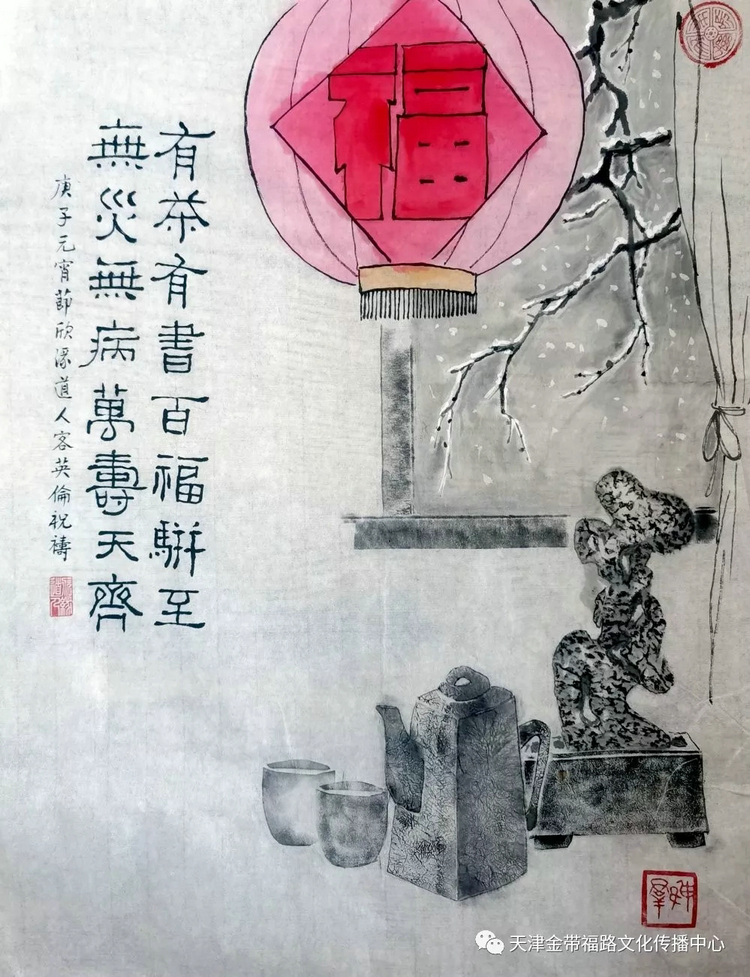 福
有茶有書百福駢至
無災無病萬壽天齊
庚子元宵節欣濠道人客英倫祝禱
天津金带福路文化传播中心